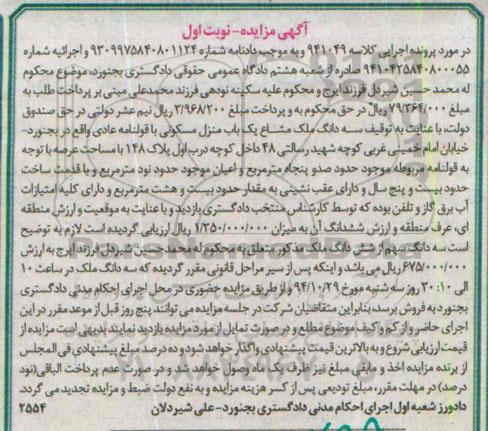 آگهی مزایده- نوبت اول
در مورد پرونده اجرایی کلاسه ۹۴۱۰۴۹ و به موجب دادنامه شماره ۹۳۰۹۹۷۵۸۴۰۸۰۱۱۲۴ و اجرائیه شماره
۹۴۱۰۴۲۵۸۴۰۸۰۰۰۵۵ صادره از شعبه هشتم دادگاه عمومی حقوقی دادگستری بجنورد، موضوع محکوم
له محمد حسین شیردل فرزند ایرج و محکوم علیه سکینه نودهی فرزند محمدعلی مبنی بر پرداخت طلب به
مبلغ ۷۹/۳۶۴/۰۰۰ ریال در حق محکوم به و پرداخت مبلغ ۳/۹۶۸/۲۰۰ ریال نیم عشر دولتی در حق صندوق
دولت، با عنایت به توقیف سه دانگ ملک مشاع یک باب منزل مسکونی با قولنامه عادی واقع در بجنورد-
خیابان امام خمینی غربی کوچه شهید رسالتی ۴۸ داخل کوچه درب اول پلاک ۱۴۸ با مساحت عرصه با توجه
به قولنامه مربوطه موجود حدود صدو پنجاه مترمربع و اعیان موجود حدود نود مترمربع و با قدمت ساخت
حدود بیست و پنج سال و دارای عقب نشینی به مقدار حدود بیست و هشت مترمربع و دارای کلیه امتیازات
آب برق گاز و تلفن بوده که توسط کارشناس منتخب دادگستری بازدید و با عنایت به موقعیت و ارزش منطقه
ای، عرف منطقه و ارزش ششدانگ آن به میزان ۱/۳۵۰/۰۰۰/۰۰۰ ریال ارزیابی گردیده است لازم به توضیح
است سه دانگ سهم از شش دانگ ملک مذکور متعلق به محکوم له محمدحسین شیردل فرزند ایرج به ارزش
۶۷۵/۰۰۰/۰۰۰ ریال می باشد و اینکه پس از سیر مراحل قانونی مقرر گردیده که سه دانگ ملک در ساعت ۱۰
الی ۱۰:۳۰ روز سه شنبه مورخ ۹۴/۱۰/۲۹ و از طریق مزایده حضوری در محل اجرای احکام مدنی دادگستری
بجنورد به فروش برسد، بنابراین متقاضیان شرکت در جلسه مزایده می توانند پنج روز قبل از موعد مقرر در این
اجرای حاضر و از کم و کیف موضوع مطلع و در صورت تمایل از مورد مزایده بازدید نمایند بدیهی است مزایده از
قیمت ارزیابی شروع و به بالاترین قیمت پیشنهادی واگذار خواهد شد و ده درصد مبلغ پیشنهادی فی المجلس
از برنده مزایده اخذ و مابقی مبلغ نیز ظرف یک ماه وصول خواهد شد و در صورت عدم پرداخت الباقی (نود
درصد) در مهلت مقرره، مبلغ تودیعی پس از کسر هزینه مزایده و به نفع دولت ضبط و مزایده تجدید می گردد.
دادورز شعبه اول اجرای احکام مدنی دادگستری بجنورد- علی شیردلان ۲۵۵۴